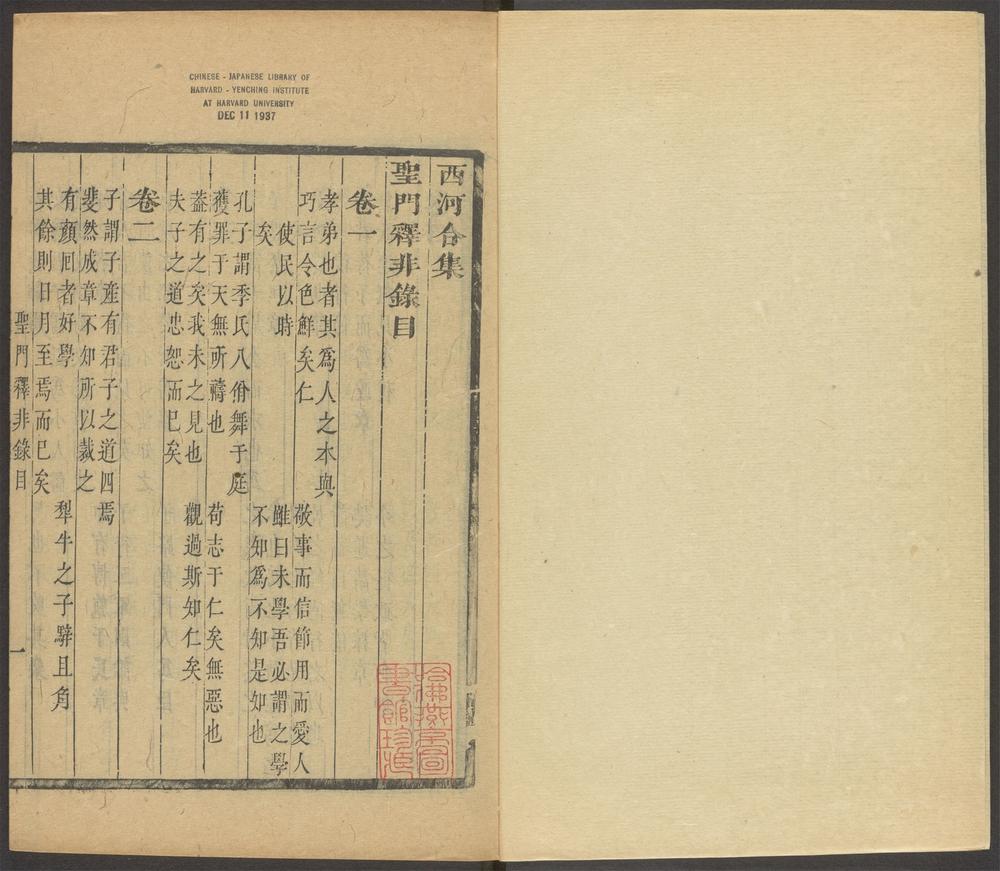 CHINESE - JAPANESE LIBRARY OF
HARVARD - YENCHING INSTITUTE
AT HARVARD UNIVERSITY
DEC 11 1937
西河合集
聖門釋非錄目
卷一
孝弟也者其爲人之本與
巧言令色鮮矣仁 敬事而信節用而愛人
使民以時 雖曰未學吾必謂之學
矣 不知爲不知是知也
孔子謂季氏八佾舞于庭
獲罪于天無所禱也 苟志于仁矣無惡也
葢有之矣我未之見也 觀過斯知仁矣
夫子之道忠恕而已矣
卷二
子謂子產有君子之道四焉
斐然成章不知所以裁之
有顔囘者好學 犂牛之子騂且角
其餘則日月至焉而已矣
聖門釋非錄目 一
哈佛燕京圖
書館珍藏